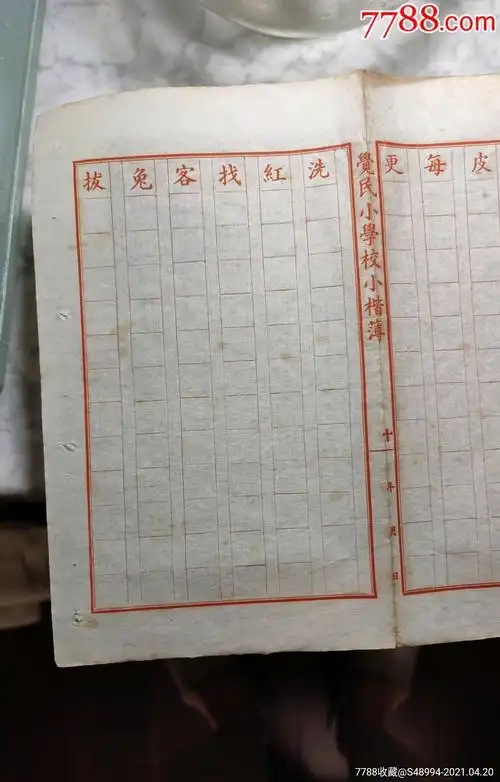 7788.com
皮每更
覺民小學校小楷簿
十
年月日
洗紅找客兔拔
7788收藏@S48994-2021.04.20